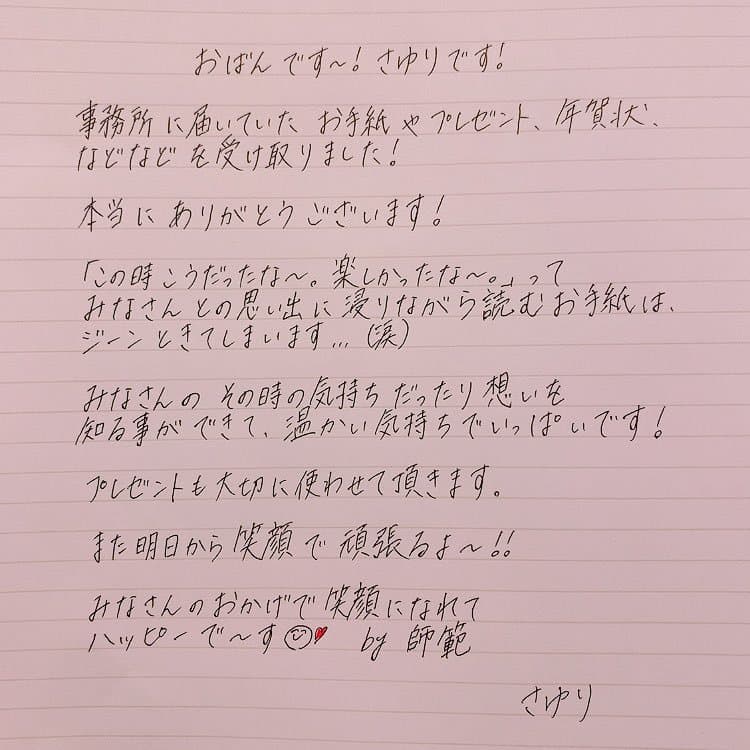 おばんです〜！さゆりです！
事務所に届いていた お手紙やプレゼント、年賀状、
などなどを受け取りました！
本当にありがとうございます！
「この時こうだったな〜。楽しかったな〜。」って
みなさんとの思い出に浸りながら読むお手紙は、
ジーンときてしまいます…（涙）
みなさんの その時の気持ちだったり想いを
知る事ができて、温かい気持ちでいっぱいです！
プレゼントも大切に使わせて頂きます。
また明日から笑顔で頑張るよ〜！！
みなさんのおかげで笑顔になれて
ハッピーで〜す☺♥ by 師範
さゆり